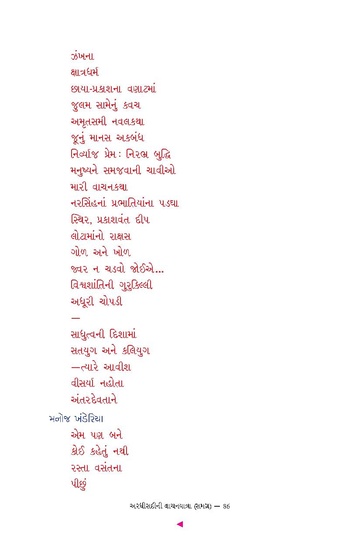 ઝંખના
ક્ષાત્રધર્મ
છાયા-પ્રકાશના વણાટમાં
જુલમ સામેનું કવચ
અમૃતસમી નવલકથા
જૂનું માનસ અકબંધ
નિર્વ્યાજ પ્રેમ : નિરભ્ર બુદ્ધિ
મનુષ્યને સમજવાની ચાવીઓ
મારી વાચનકથા
નરસિંહનાં પ્રભાતિયાંના પડઘા
સ્થિર, પ્રકાશવંત દીપ
લોટામાંનો રાક્ષસ
ગોળ અને ખોળ
જ્વર ન ચડવો જોઈએ...
વિશ્વશાંતિની ગુરુકિલ્લી
અધૂરી ચોપડી
—
સાધુત્વની દિશામાં
સતયુગ અને કલિયુગ
—ત્યારે આવીશ
વીસર્યા નહોતા
અંતરદેવતાને
મનોજ ખંડેરિયા
એમ પણ બને
કોઈ કહેતું નથી
રસ્તા વસંતના
પીછું
અરધીસદીની વાચનયાત્રા (સમગ્ર) — 86